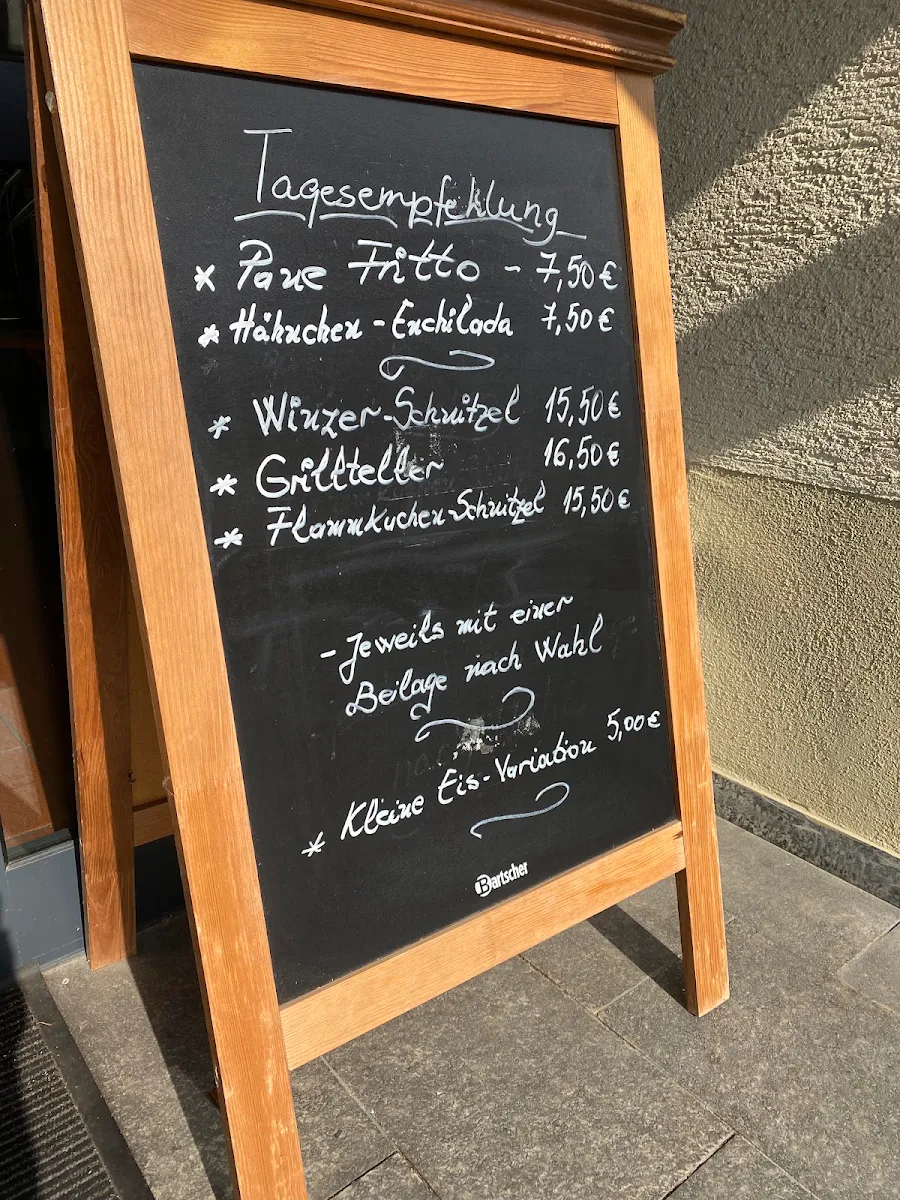 Tagesempfehlung
* Pane Fritto - 7,50 €
* Hähnchen - Enchilada 7,50 €
* Winzer-Schnitzel 15,50 €
* Grillteller 16,50 €
* Flammkuchen-Schnitzel 15,50 €
- Jeweils mit einer
Beilage nach Wahl
* Kleine Eis-Variation 5,00 €
Bartscher